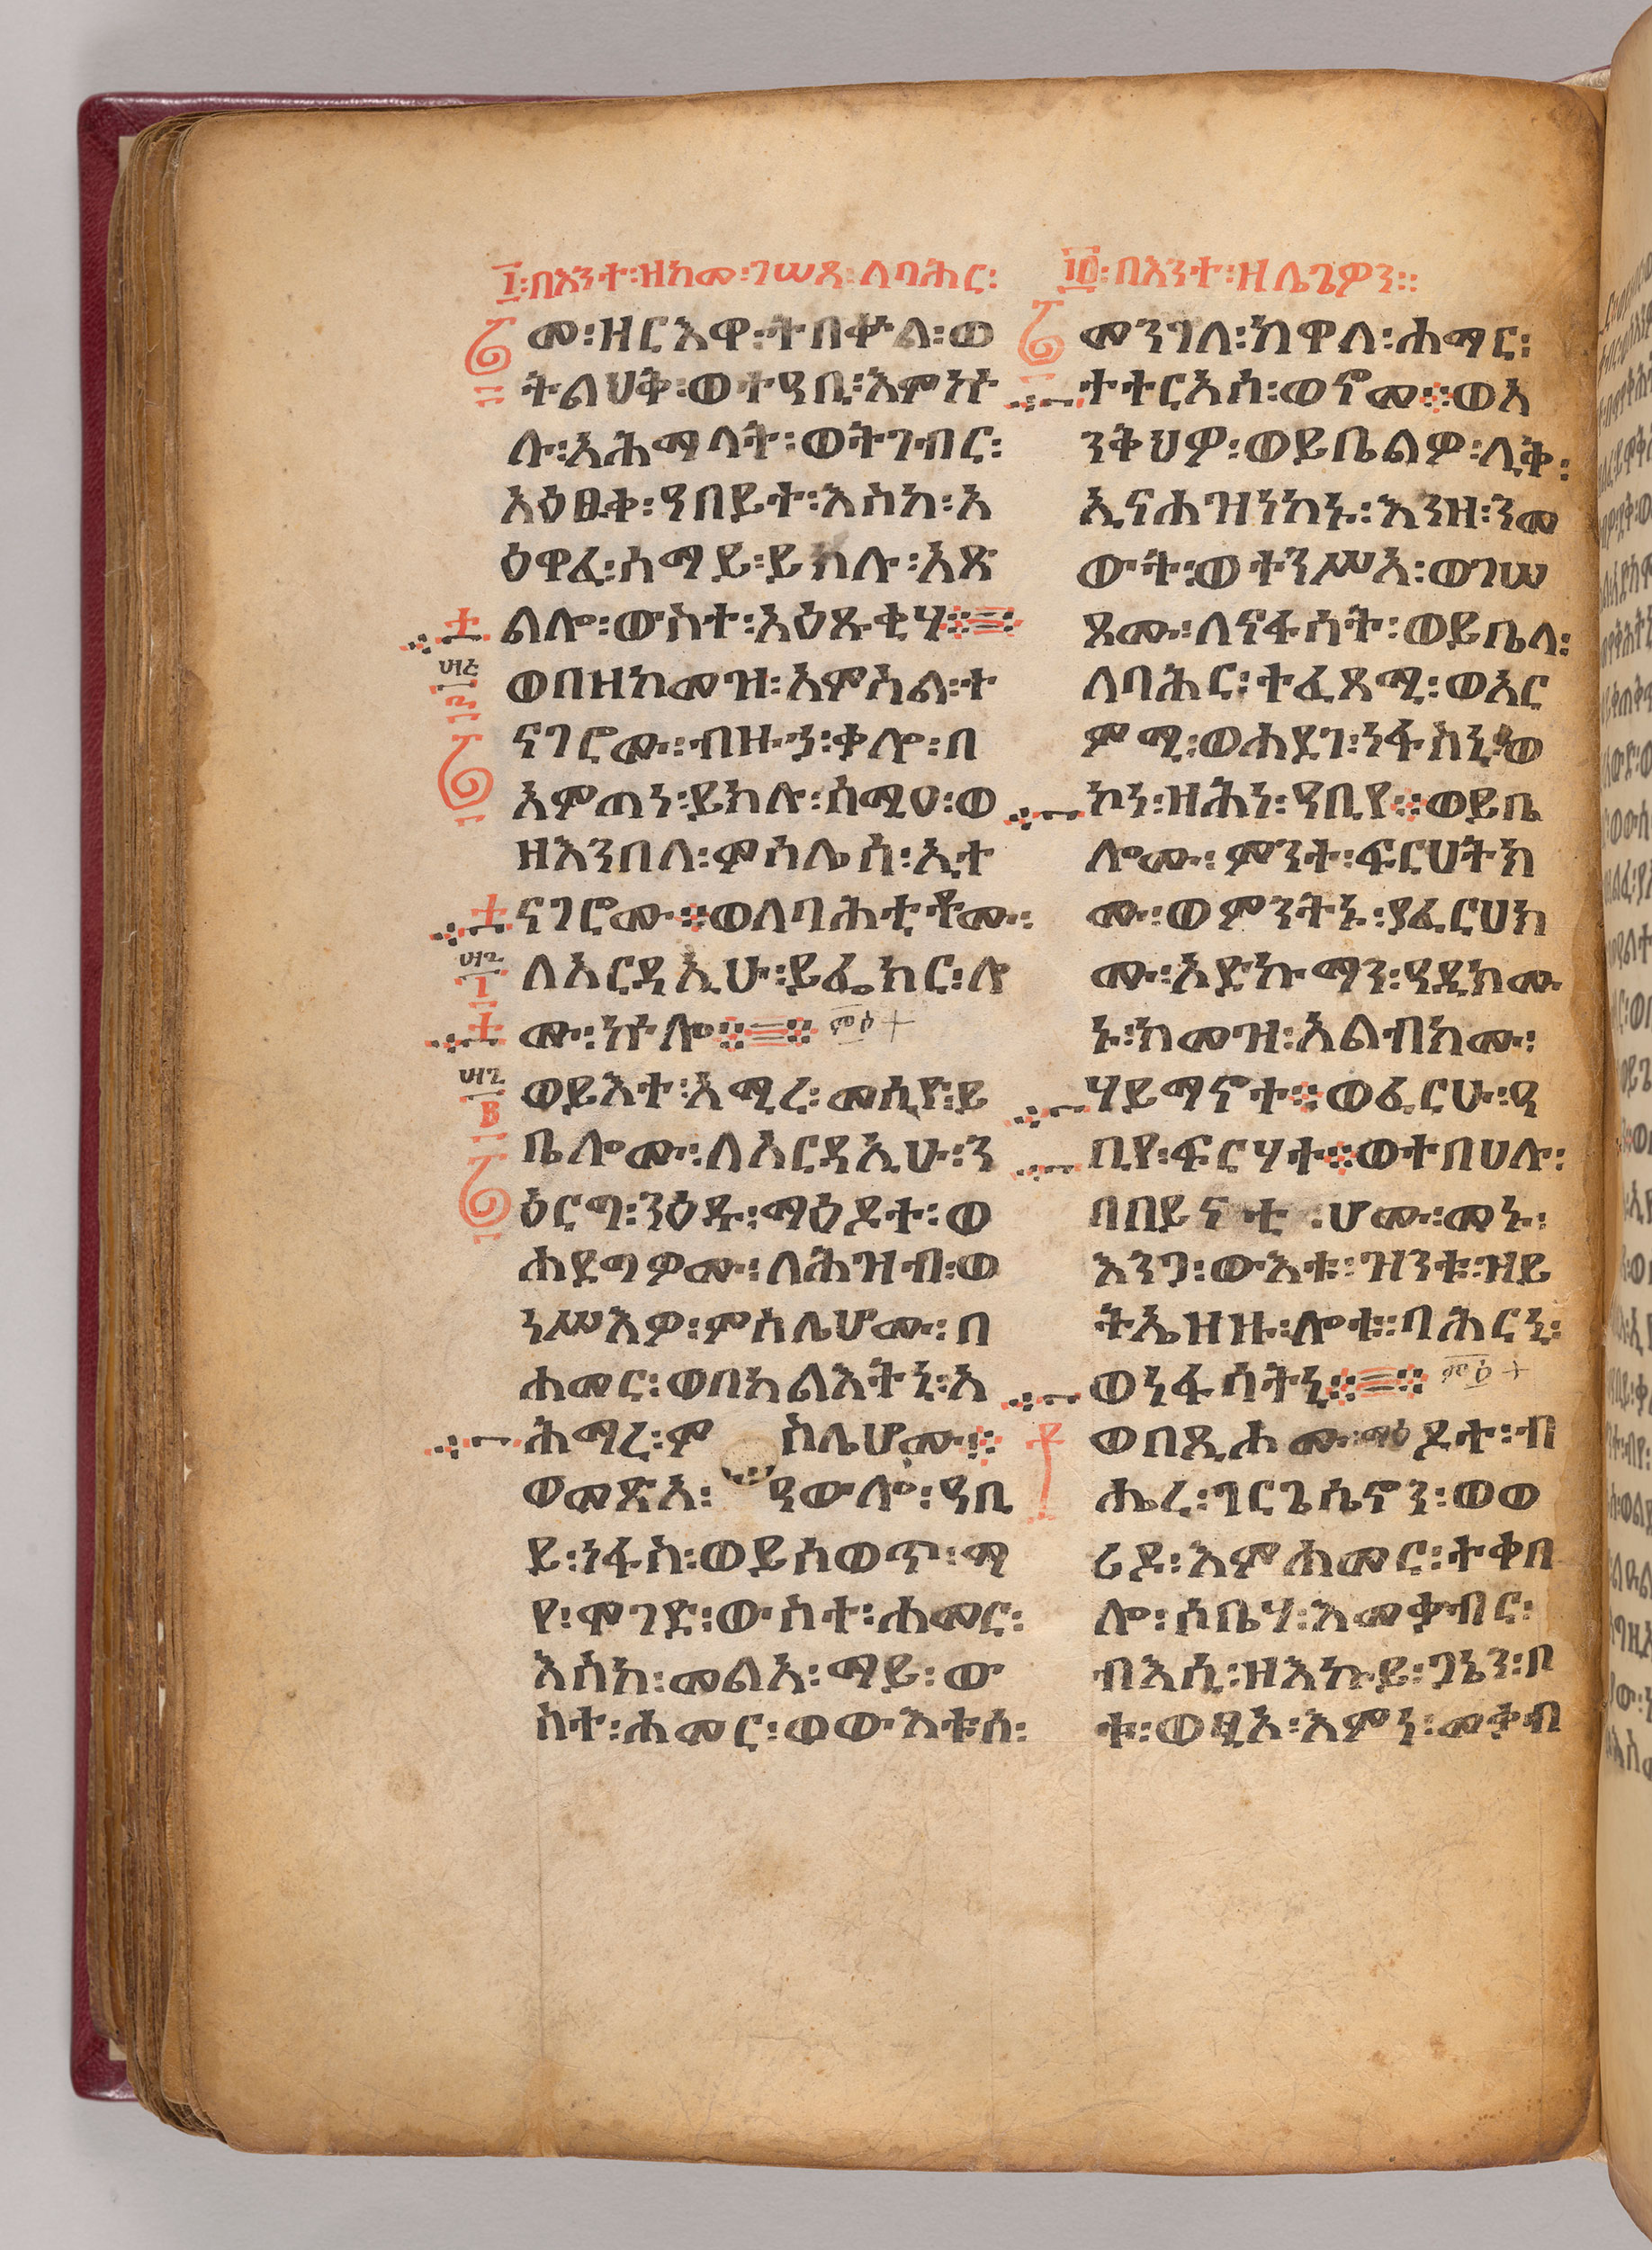 ፲፡በእንተ፡ዘከመ፡ገሠጸ፡ለባሕር፡
መ፡ዘርእዋ፡ትበቍል፡ወ
ትልህቅ፡ወተዓቢ፡እምኵ
ሉ፡አሕማላት፡ወትገብር፡
አዕፀቀ፡ዓበይተ፡እስከ፡አ
ዕዋፈ፡ሰማይ፡ይክሉ፡አጽ
ልሎ፡ውስተ፡አዕጹቂሃ፨
ወበዘከመዝ፡አምሳል፡ተ
ናገሮሙ፡ብዙኃ፡ቃሎ፡በ
አምጠነ፡ይክሉ፡ሰሚዐ፡ወ
ዘእንበለ፡ምሳሌሰ፡ኢተ
ናገሮሙ፨ወለባሕቲቶሙ፡
ለአርዳኢሁ፡ይፌክር፡ሎ
ሙ፡ኵሎ፨
ወይእተ፡አሚረ፡መስዮ፡ይ
ቤሎሙ፡ለአርዳኢሁ፡ን
ዕርግ፡ንዕዱ፡ማዕዶተ፡ወ
ሐደግዎሙ፡ለሕዝብ፡ወ
ነሥእዎ፡ምስሌሆሙ፡በ
ሐመር፡ወበካልእትኒ፡አ
ሕማረ፡ምስሌሆሙ፨
ወመጽአ፡ዓውሎ፡ዓቢ
ይ፡ነፋስ፡ወይሰወጥ፡ማ
የ፡ሞገድ፡ውስተ፡ሐመር፡
እስከ፡መልአ፡ማይ፡ው
ስተ፡ሐመር፡ወውእቱሰ፡
፲፬፡በእንተ፡ዘሌጌዎን፡፡
መንገለ፡ከዋላ፡ሐማር፡
ተትርአሰ፡ወኖመ፨ወአ
ንቅህዎ፡ወይቤልዎ፡ሊቅ፡
ኢናሐዝነከኑ፡እንዘ፡ንመ
ውት፡ወተንሥአ፡ወገሠ
ጾሙ፡ለነፋሳት፡ወይቤላ፡
ለባሕር፡ተፈጸሚ፡ወአር
ምሚ፡ወሐደገ፡ነፋስኒ፡ወ
ኮነ፡ዘሕነ፡ዓቢየ፨ወይቤ
ሎሙ፡ምንት፡ፍርሀትክ
ሙ፡ወምንትኑ፡ያፈርሀክ
ሙ፡አድኩማን፡ዓዲክሙ
ኑ፡ከመዝ፡አልብክሙ፡
ሃይማኖተ፨ወፈርሁ፡ዓ
ቢየ፡ፍርሃተ፨ወተበሀሉ፡
በበይናቲሆሙ፡መኑ፡
እንጋ፡ውእቱ፡ዝንቱ፡ዝይ
ትኤዘዙ፡ሎቱ፡ባሕርኒ፡
ወነፋሳትኒ፨
ወበጺሖሙ፡ማዕዶተ፡ብ
ሔረ፡ገርጌሴኖን፡ወወ
ሪዶ፡እምሐመር፡ተቀበ
ሎ፡ሶቤሃ፡እመቃብር፡
ብእሲ፡ዘእኩይ፡ጋኔን፡ቦ
ቱ፡ወፂአ፡እምነ፡መቃብ